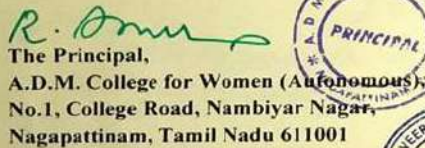 PRINCIPAL
The Principal,
A.D.M. College for Women (Autonomous),
No.1, College Road, Nambiyar Nagar,
Nagapattinam, Tamil Nadu 611001